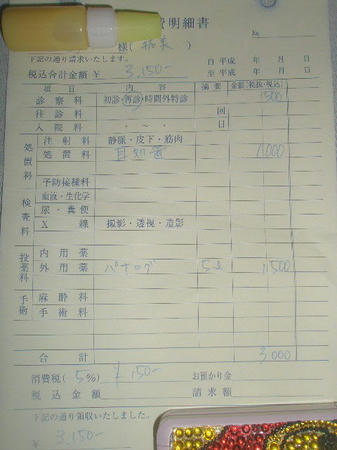 費明細書
No.
様(
下記の通り請求いたします。
自 平成 年 月 日
税込合計金額 ¥ 3,150-
至 平成 年 月 日
項 目 内 容 摘 要 金額(税抜・税込)
診察料 初診・再診・時間外特診 500
往診料 回
入院料 ~ 日
処置料 注射料 静脈・皮下・筋肉
処置料 耳処置 1,000
予防接種料
検査料 血液・生化学
尿・糞便
X線 撮影・透視・造影
投薬料 内用薬
外用薬 パナログ 1,500
手術 麻酔料
手術料
合 計 3,000
消費税(5%) ¥150-
お預かり金
税込金額 請求額
下記の通り領収いたしました。
¥ 3,150-